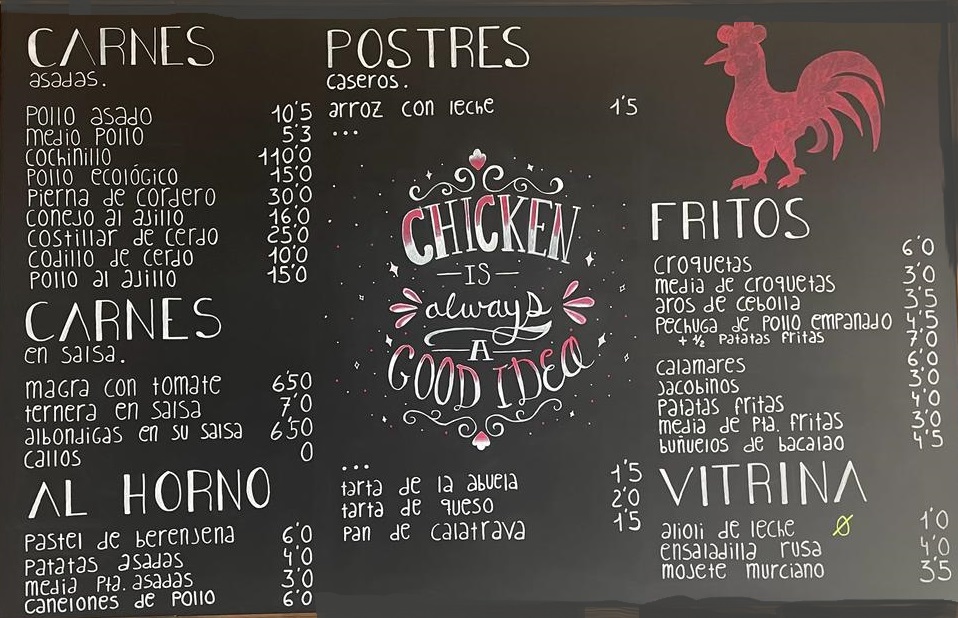 CARNES
asadas.
Pollo asado 10'5
medio Pollo 5'3
cochinillo 110'0
Pollo ecológico 15'0
Pierna de cordero 30'0
conejo al ajillo 16'0
costillar de cerdo 25'0
codillo de cerdo 10'0
Pollo al ajillo 15'0
CARNES
en salsa.
magra con tomate 6'50
ternera en salsa 7'0
albondigas en su salsa 6'50
callos 0
AL HORNO
Pastel de berenjena 6'0
Patatas asadas 4'0
media Pta. asadas 3'0
canelones de Pollo 6'0
POSTRES
caseros.
arroz con leche 1'5
...
CHICKEN
IS
always
A
GOOD IDEA
...
tarta de la abuela 1'5
tarta de queso 2'0
Pan de calatrava 1'5
FRITOS
croquetas 6'0
media de croquetas 3'0
aros de cebolla 3'5
Pechuga de Pollo empanado 4'5
+ ½ Patatas fritas 7'0
calamares 6'0
Jacobinos 3'0
Patatas fritas 4'0
media de Pta. fritas 3'0
buñuelos de bacalao 4'5
VITRINA
alioli de leche Ø 1'0
ensaladilla rusa 4'0
mojete murciano 3'5